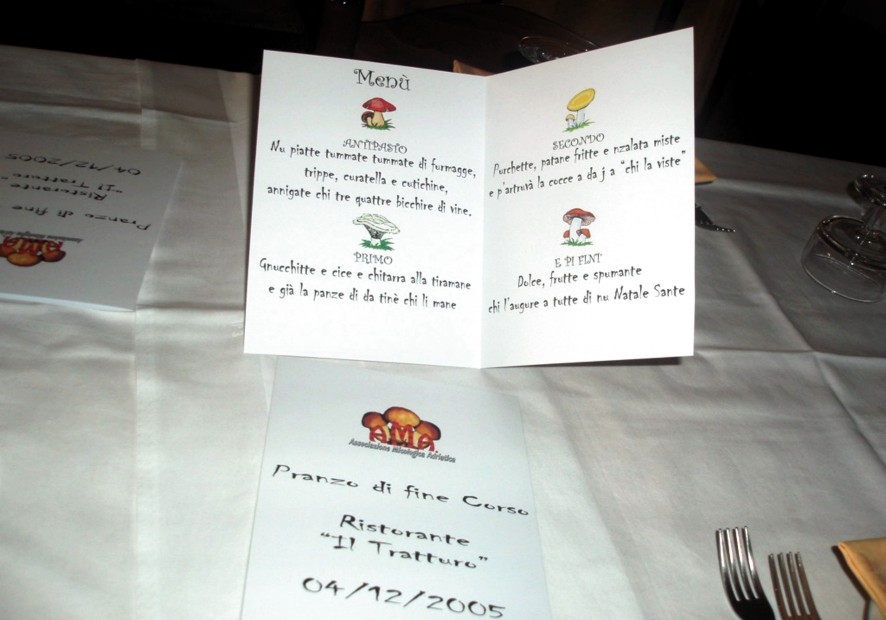 Menù
ANTIPASTO
Nu piatte tummate tummate di furmagge,
trippe, curatella e cutichine,
annigate chi tre quattre bicchire di vine.
PRIMO
Gnucchitte e cice e chitarra alla tiramane
e già la panze di da tinè chi li mane
SECONDO
Purchette, patane fritte e nzalata miste
e p'artruvà la cocce a da j a “chi la viste”
E PI FINI'
Dolce, frutte e spumante
chi l'augure a tutte di nu Natale Sante
AMA
Associazione Micologica Adriatica
Pranzo di fine Corso
Ristorante
“Il Tratturo”
04/12/2005
AMA
Pranzo di fine
Ristorante
“Il Tratturo”
04/12/2005